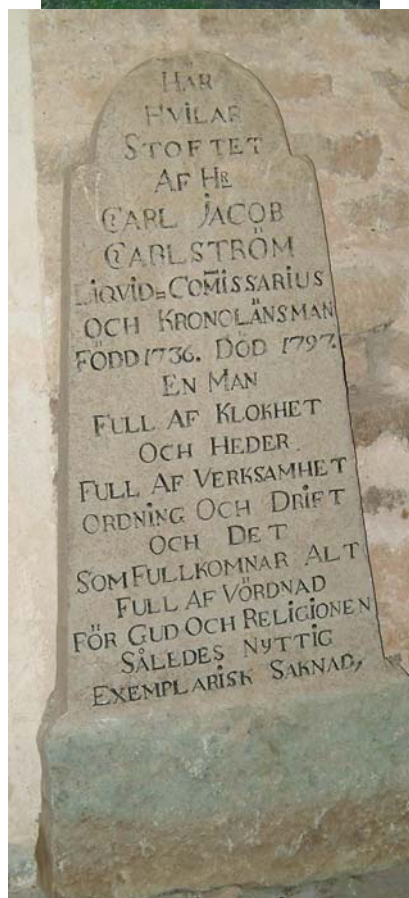 HAR
HVILAR
STOFTET
AF HR
CARL JACOB
CARLSTRÖM
LIQVID=COM̅ISSARIUS
OCH KRONOLÄNSMAN
FÖDD 1736. DÖD 1797.
EN MAN
FULL AF KLOKHET
OCH HEDER
FULL AF VERKSAMHET
ORDNING OCH DRIFT
OCH DET
SOM FULLKOMNAR ALT
FULL AF VÖRDNAD
FÖR GUD OCH RELIGIONEN
SÅLEDES NYTTIG
EXEMPLARISK SAKNAD,